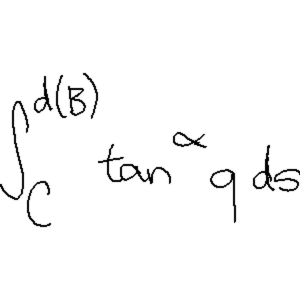 \int_{C}^{d(B)} \tan^{\alpha} q \, ds